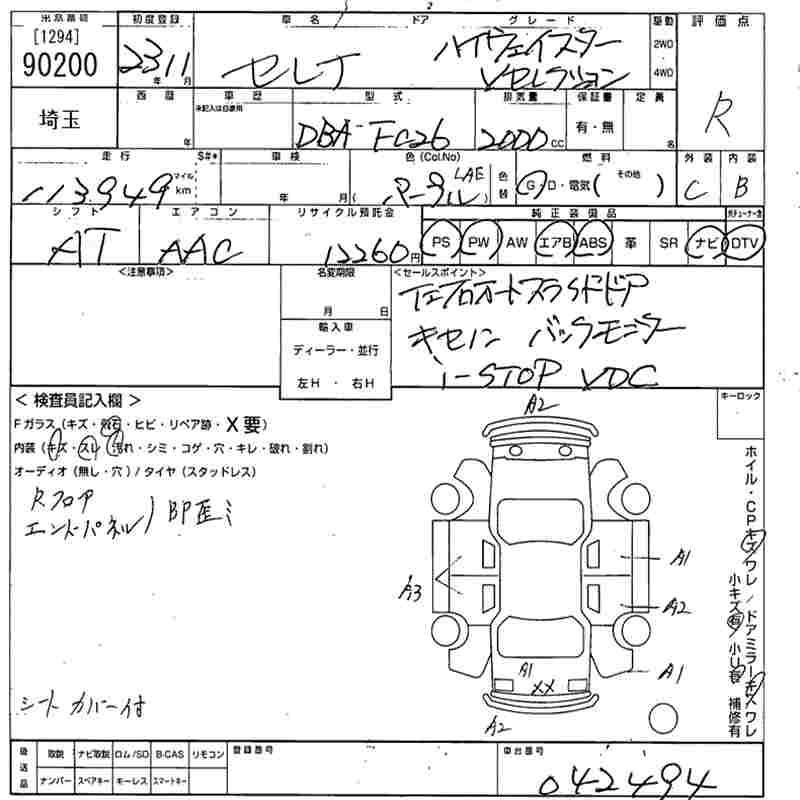 出品番号 初度登録 車名 ドア グレード 駆動 評価点
[1294]
90200
23 11
年 月
セレナ
ハイウェイスター
Vセレクション
2WD
4WD
R
埼玉
西暦 車歴 型式 排気量 保証書 定員
未記入は自家用
年
DBA-FC26
2000 cc
有・無
名
走行 S#* 車検 色(Col.No) 燃料 外装 内装
113,949
マイル
km
年 月
パール
LAE
色替
G・D・電気( その他 )
C
B
シフト エアコン リサイクル預託金 純正装備品
AT
AAC
12260円
PS PW AW エアB ABS 革 SR ナビ DTV
<注意事項> 名変期限 <セールスポイント>
月 日
輸入車
ディーラー・並行
左H ・ 右H
オートスライドドア
キセノン バックモニター
i-STOP VDC
< 検査員記入欄 >
キーロック
Fガラス (キズ・飛石・ヒビ・リペア跡・X要)
内装 (キズ・スレ・汚れ・シミ・コゲ・穴・キレ・破れ・割れ)
オーディオ (無し・穴) / タイヤ (スタッドレス)
Rフロア
エンドパネル
BP歪ミ
A2
A3
A1
A2
A1
A1
XX
A2
ホイル・CPキズ/ワレ / ドアミラーキズ/ワレ
小キズ有/小U有 補修有
シートカバー付
後送品
取説 ナビ取説 ロム/SD B-CAS リモコン
ナンバー スペアキー キーレス スマートキー
登録番号
車台番号
042494